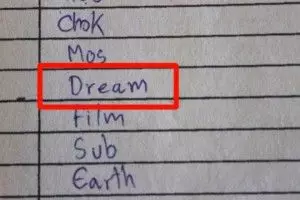 Chok
Mos
Dream
Film
Sub
Earth